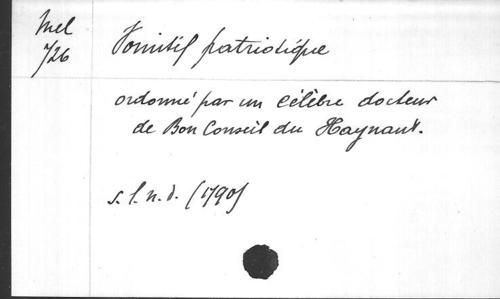 Mel
726
Vomitif patriotique
ordonné par un célèbre docteur
de Bon Conseil du Haynaut.
s.l.n.d. (1790)